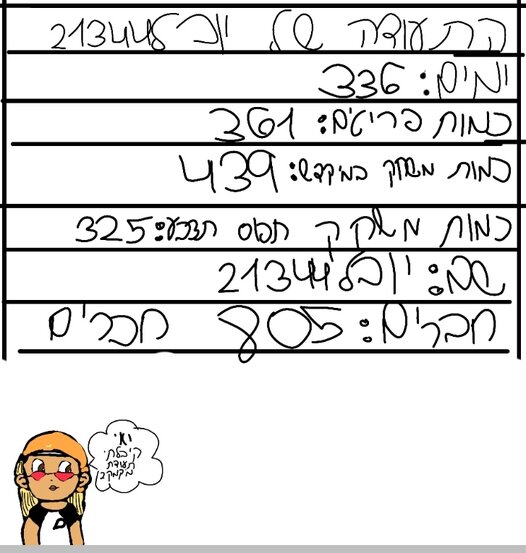 התעודה של יובל21344
ימים: 336
כמות פריטים: 361
כמות משחק במקדש: 439
כמות משקק תפוס תצבע: 325
שם: יובל21344
חברים: 805 חברים
יאי
קיבלתי
תעודת